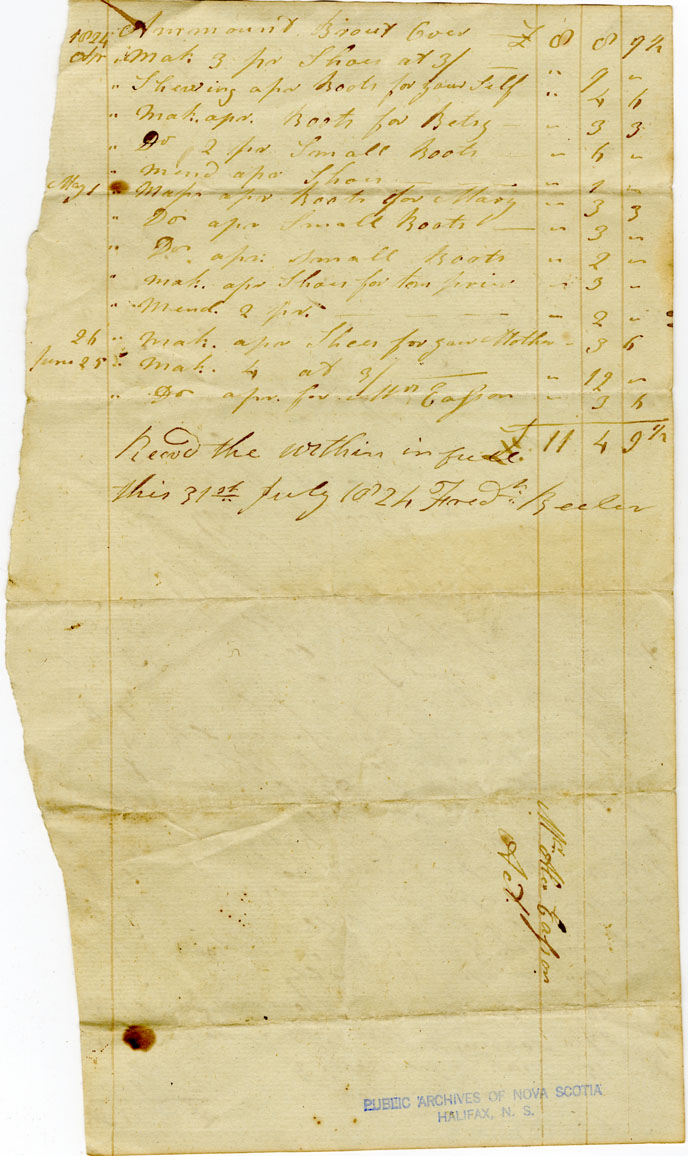 1824 Ammount Brout Over £ 8 8 9 1/2
Apr " Mak 3 pr Shoes at 3/ " 9 "
" Shewing apr Boots for your Self " 4 6
" Mak. apr. Boots for Betsy " 3 3
" Do 2 pr Small Boots " 6 "
" Mend apr Shoes " 1 "
May 1 " Mak apr Boots for Mary " 3 3
" Do apr Small Boots " 3 "
" Do apr. Small Boots " 2 "
" Mak. apr Shoes for tom " 3 "
" Mend. 2 pr. " 2 "
26 " Mak. apr Shoes for your Mother " 3 6
June 25 " Mak. 4 at 3/ " 12 "
" Do apr. for Mrs Easson " 3 6
£ 11 4 9 1/2
Recvd the within in full
this 31st July 1824 Fredk Beeler
Mr Alex Easson
Act
PUBLIC ARCHIVES OF NOVA SCOTIA
HALIFAX, N. S.